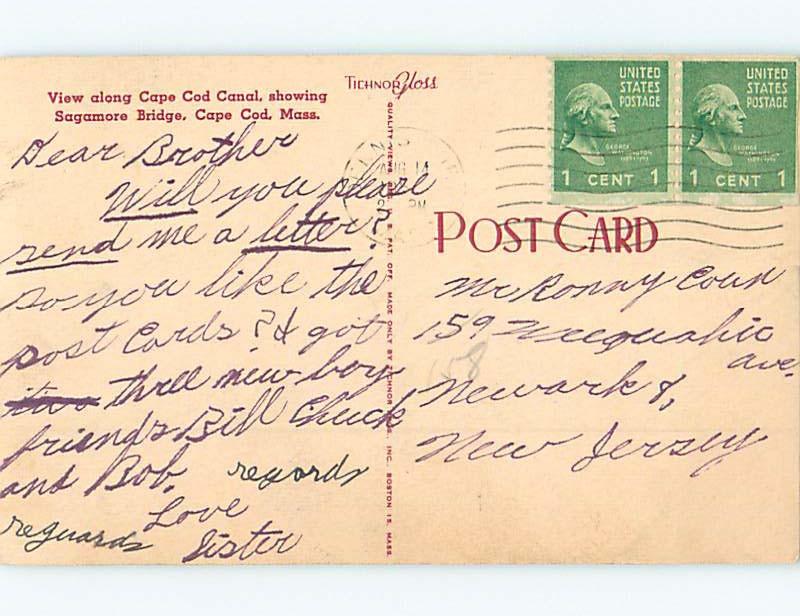 View along Cape Cod Canal, showing
Sagamore Bridge, Cape Cod, Mass.
TICHNOR Gloss
QUALITY VIEWS. PAT. OFF. MADE ONLY BY TICHNOR BROS. INC. BOSTON 15, MASS.
UNITED
STATES
POSTAGE
GEORGE
WASHINGTON
1789-1797
1 CENT 1
UNITED
STATES
POSTAGE
GEORGE
WASHINGTON
1789-1797
1 CENT 1
AUG 14
PM
POST CARD
Dear Brother
Will you please
send me a letter?
so you like the
post Cards? I got
two three new boy
friends Bill Chuck
and Bob.
regards
Love
reguards
Sister
Mr Ronny
159 Weequahic
ave.
Newark 8,
New Jersey
158